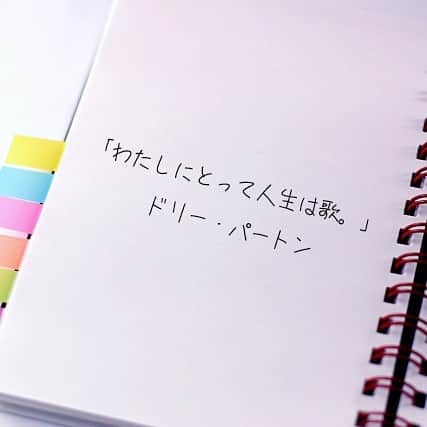 「わたしにとって人生は歌。」
ドリー・パートン